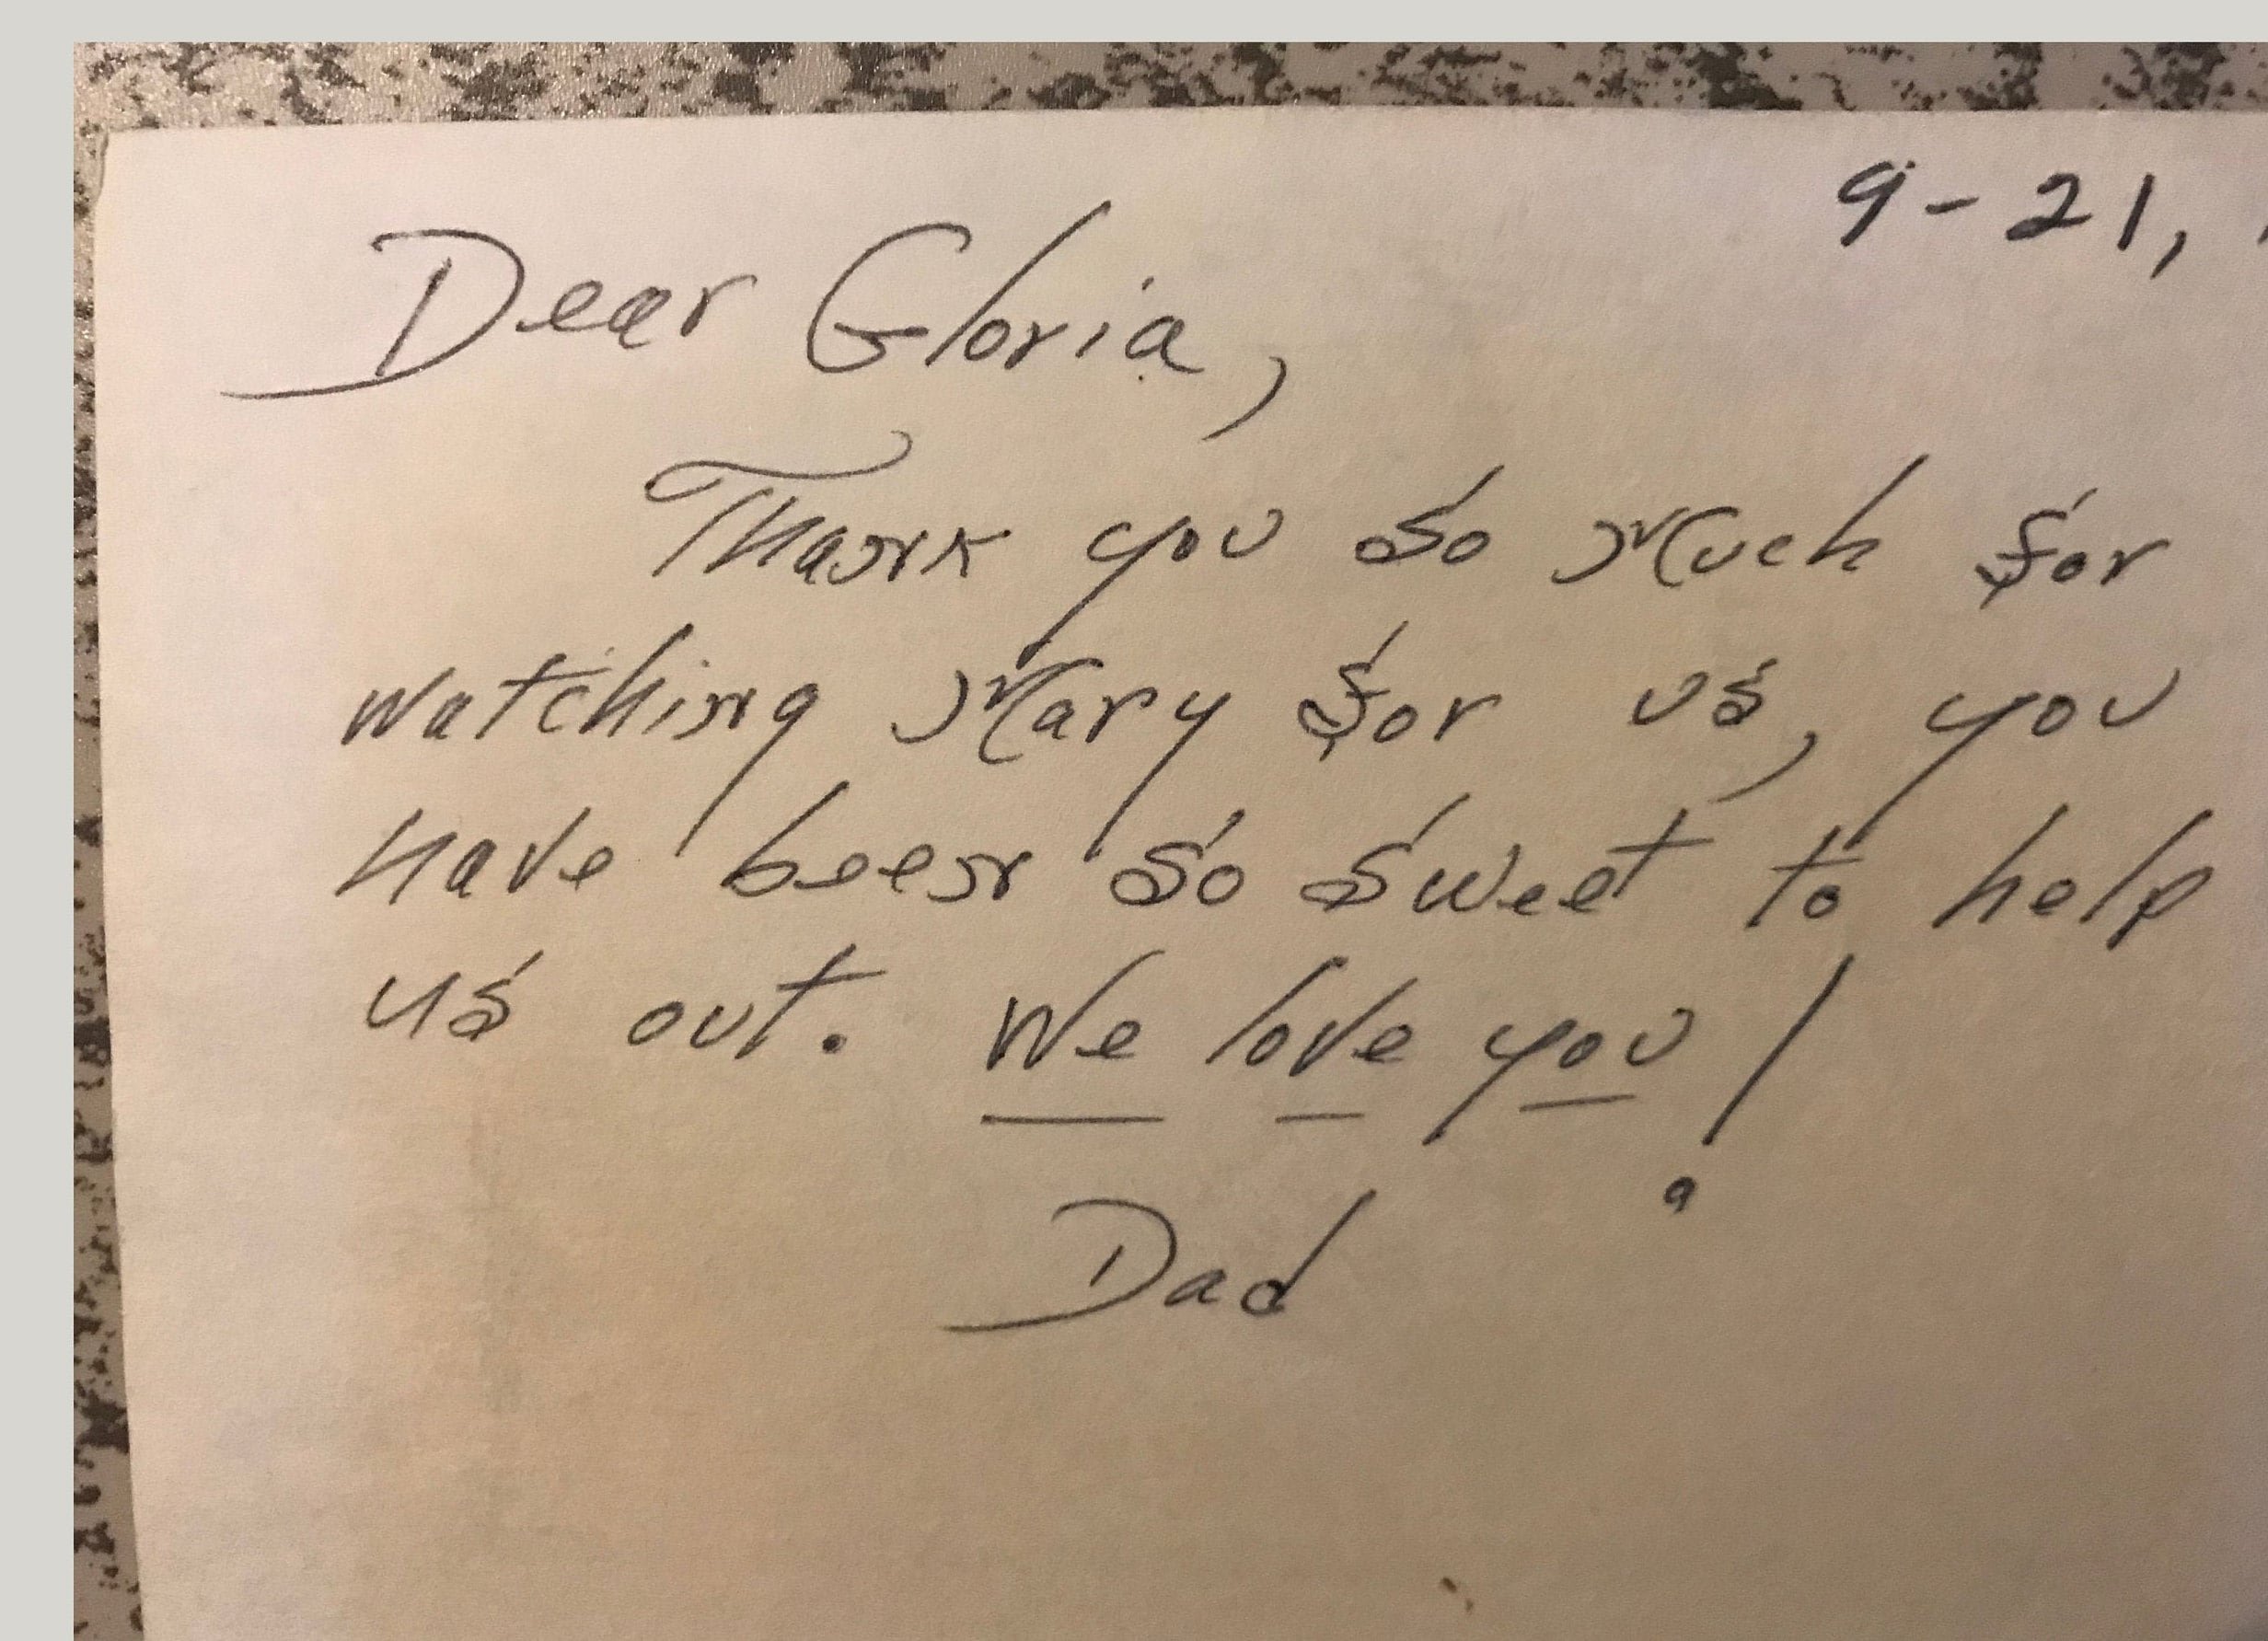 9-21,
Dear Gloria,
Thank you so much for
watching Mary for us, you
have been so sweet to help
us out. We love you!
Dad